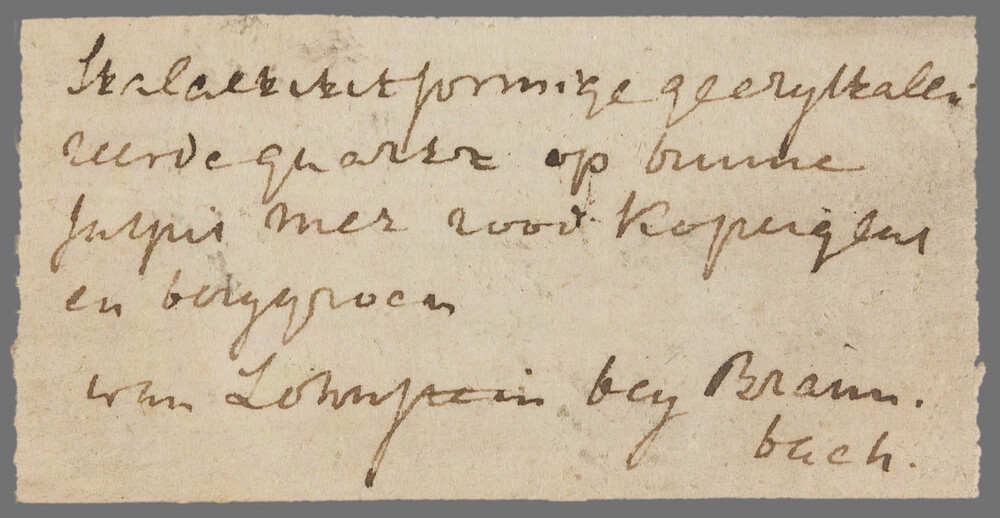 Stalaktitformige gecrystalli
zeerde quartz op bruine
Jaspis met rood koperglas
en berggroen
van Lohnstein bey Braun.
bach.